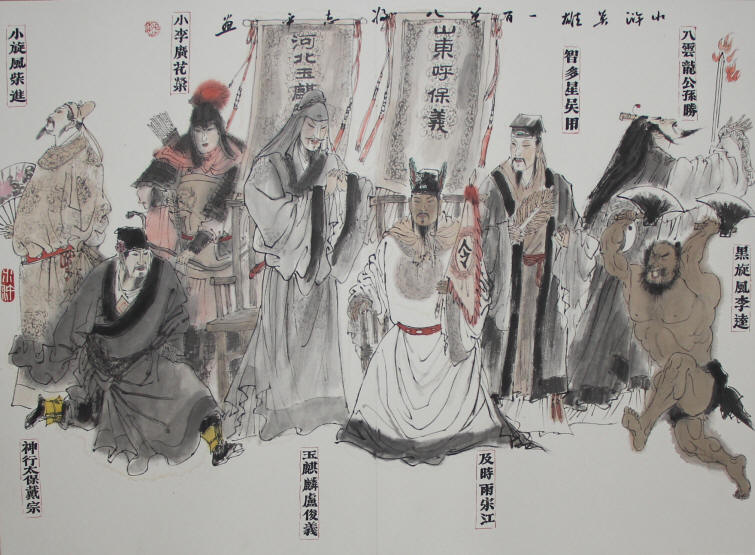 水浒英雄一百单八将志平画
入雲龍公孫勝
智多星吳用
山東呼保義
河北玉麒
小李廣花榮
小旋風柴進
黑旋風李逵
令
及時雨宋江
玉麒麟盧俊義
神行太保戴宗